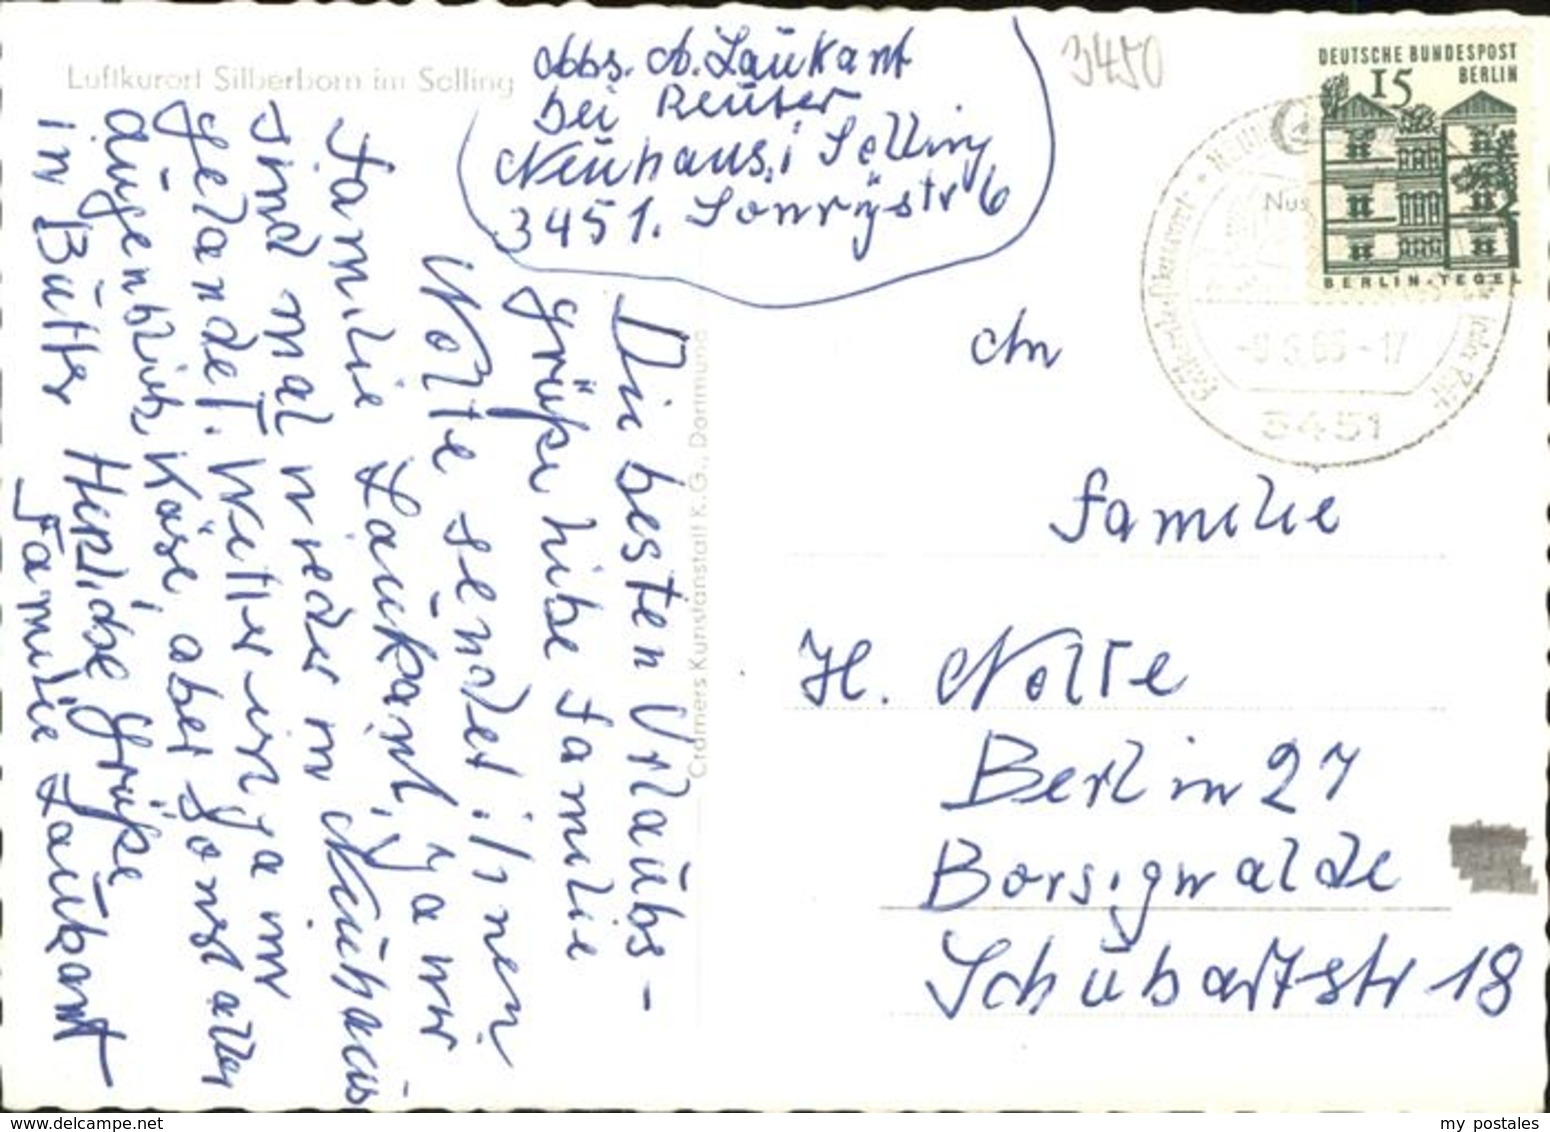 Luftkurort Silberborn im Solling
Abs. A. Laukant
bei Reuter
Neuhaus i Solling
3451.
3450
DEUTSCHE BUNDESPOST
BERLIN
15
BERLIN-TEGEL
3451
An
Familie
H. Nolte
Berlin 27
Borsigwalde
Schubartstr 18
Cramers Kunstanstalt K.G., Dortmund
Die besten Urlaubs-
grüße liebe Familie
Nolte sendet ihnen
Familie Laukant, ja wir
sind mal wieder in Neuhaus
gelandet. Wetter ist ja im
augenblick Käse, aber sonst alles
in Butter Herzliche Grüße
Familie Laukant